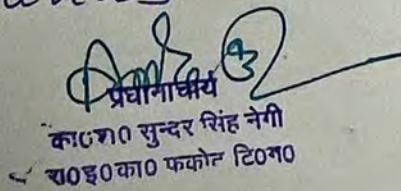 प्रधानाचार्य
का०श० सुन्दर सिंह नेगी
रा०इ०का० फकोट टि०ग०